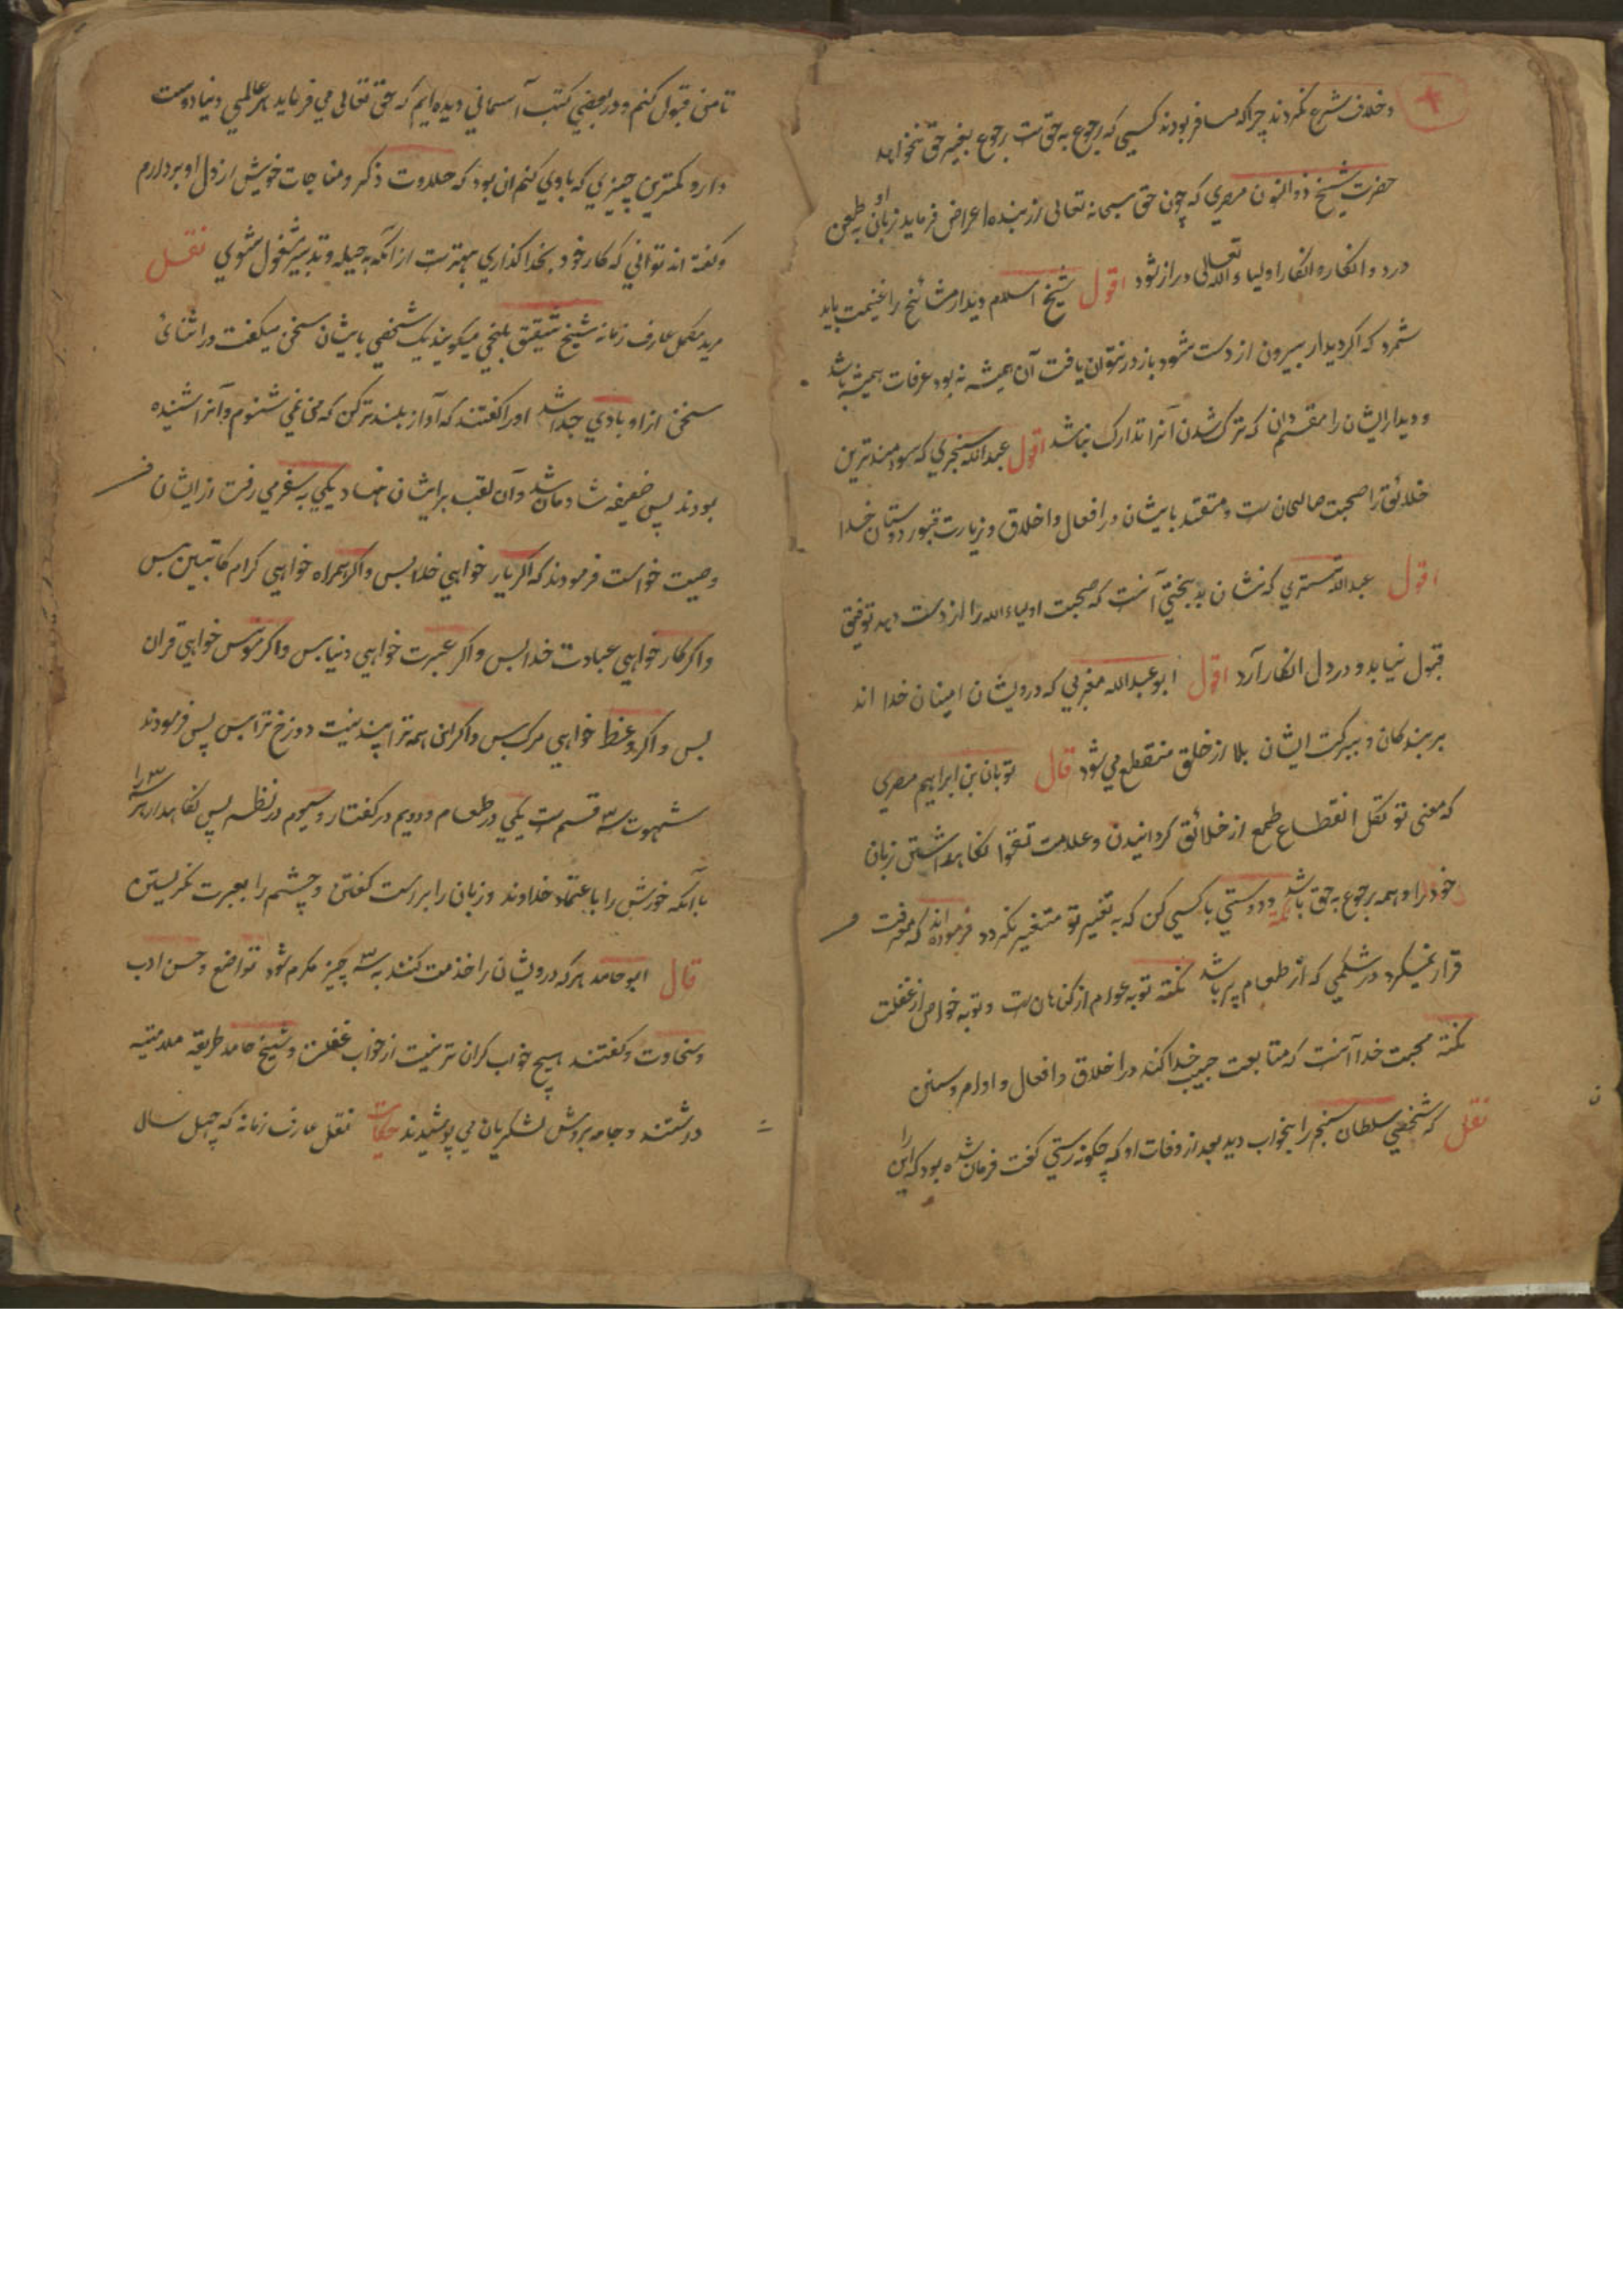 وخلاف شرع نکردند چراکه مسافر بودند کسیی که رجوع به حق ست رجوع بغیر حق نخواهد
حضرت شیخ ذوالنون مصری که چون حق سبحانه تعالی از بنده اعراض فرماید زبان او به طعن
درد و انکار اولیاء الله تعالی دراز شود اقول شیخ اسلام دیدار مشائخ را غنیمت باید
شمرد که اکر دیدار بیرون از دست شود باز در نتوان یافت آن همیشه نه بود عرفات همیشه باشد
و دیدار ایشان را مغتنم دان که ترک شدن آنرا تدارک نباشد اقول عبدالله سنجری که سودمندترین
خلائق را صحبت صالحان ست و مقتد بایشان در افعال واخلاق و زیارت قبور دوستان خدا
اقول عبدالله تستری که نشان بدبختی آنست که صحبت اولیاء الله را از دست دهد توفیق
قبول نیابد و در دل انکار آرد اقول ابو عبدالله مغربی که درویشان امینان خدا اند
بر بندکان و ببرکت ایشان بلا از خلق منقطع می شود قال ثوبان بن ابراهیم مصری
که معنی توکل انقطاع طمع از خلائق کردانیدن وعلامت تقوا نکاهداشتن زبان
خود را و همه رجوع به حق باشد نکته ودوستی باکسیی کن که به تغیر تو متغیر نکردد فرموده اند که معرفت
قرار نمیکرد در شکمیی که از طعام پر باشد نکته توبه عوام از کناهان ست وتوبه خواص از غفلت
نکته محبت خدا آنست که متابعت حبیب خدا کند در اخلاق وافعال و اوامر وسنن
نقل که شخصی سلطان سنجر را بخواب دید بعد از وفات او که چکونه رستی کفت فرمان شده بود که این را
تا من قبول کنم ودر بعضی کتب آسمانی دیده ایم که حق تعالی می فرماید هر عالمی دنیا دوست
دارد کمترین چیزی که باوی کنم ان بود که حلاوت ذکر ومناجات خویش از دل او بردارم
وکفته اند توانی که کار خود بخدا کذاری بهترست از آنکه به حیله وتدبیر مشغول شوی نقل
مرید مکمل عارف زمانه شیخ شقیق بلخی میکویند یک شخصی بایشان سخن میکفت در اثنای
سخن از او بادی جدا شد اورا کفتند که آواز بلندتر کن که من نمی شنوم وآنرا شنیده
بودند پس ضعیفه شادمان شد وآن لقب بر ایشان نهاد یکی به سفر می رفت از ایشان
وصیت خواست فرمودند که اکر یار خواهی خدا بس واکر همراه خواهی کرام کاتبین بس
واکر کار خواهی عبادت خدا بس واکر عبرت خواهی دنیا بس واکر مونس خواهی قران
بس واکر وعظ خواهی مرک بس واکر این همه ترا پسند نیست دوزخ ترا بس پس فرمودند
شهوت سه قسم ست یکی در طعام ودویم در کفتار وسیوم در نظر پس نکاهدار هر سه را
باآنکه خورش را باعتماد خداوند وزبان را براست کفتن وچشم را بعبرت نکریستن
قال ابو حامد هرکه درویشان را خدمت کنند به سه چیز مکرم شود تواضع وحسن ادب
وسخاوت وکفتند هیچ خواب کران تر نیست از خواب غفلت وشیخ حامد طریقه ملامتیه
داشتند وجامه بروش لشکریان می پوشیدند حکایت نقل عارف زمانه که چهل سال